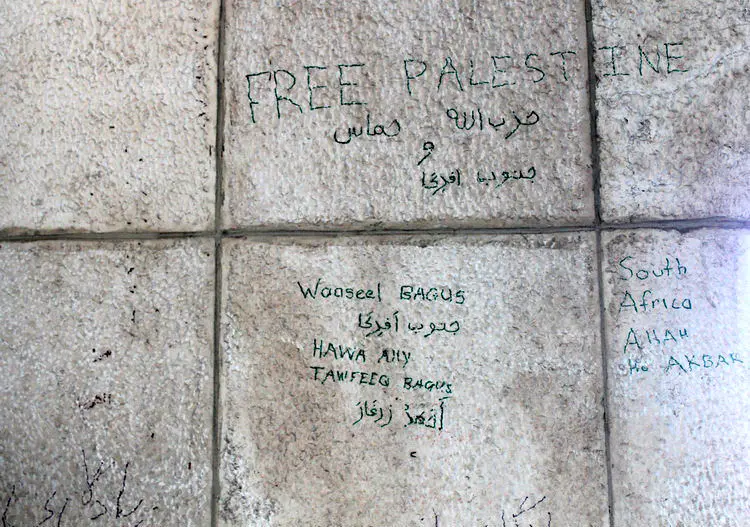 FREE PALESTINE
حزب الله حماس
و
جنوب افريحا
Waaseel BAGUS
جنوب أفريحا
HAWA Ally
TAWFEEQ BAGUS
South
Africa
Allah
Ho AKBAR